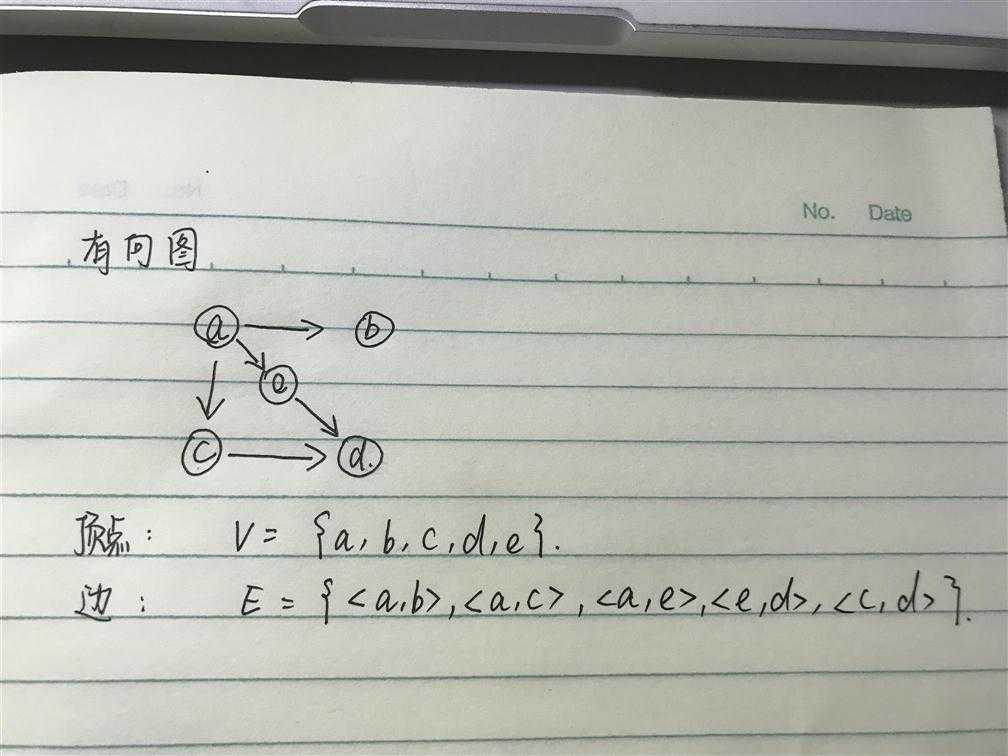 No. Date
有向图
a b
e
c d.
顶点: V = {a, b, c, d, e}.
边: E = {<a,b>, <a,c>, <a,e>, <e,d>, <c,d>}.